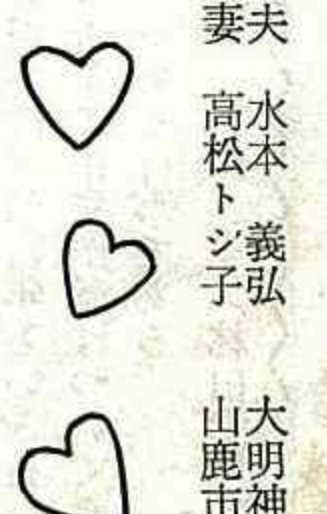 夫 水本 義弘 大明神
妻 高松トシ子 山鹿市